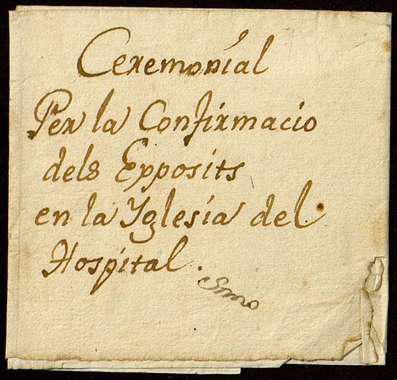 Ceremonial
Per la Confirmacio
dels Expposits
en la Yglesia del
Hospital.